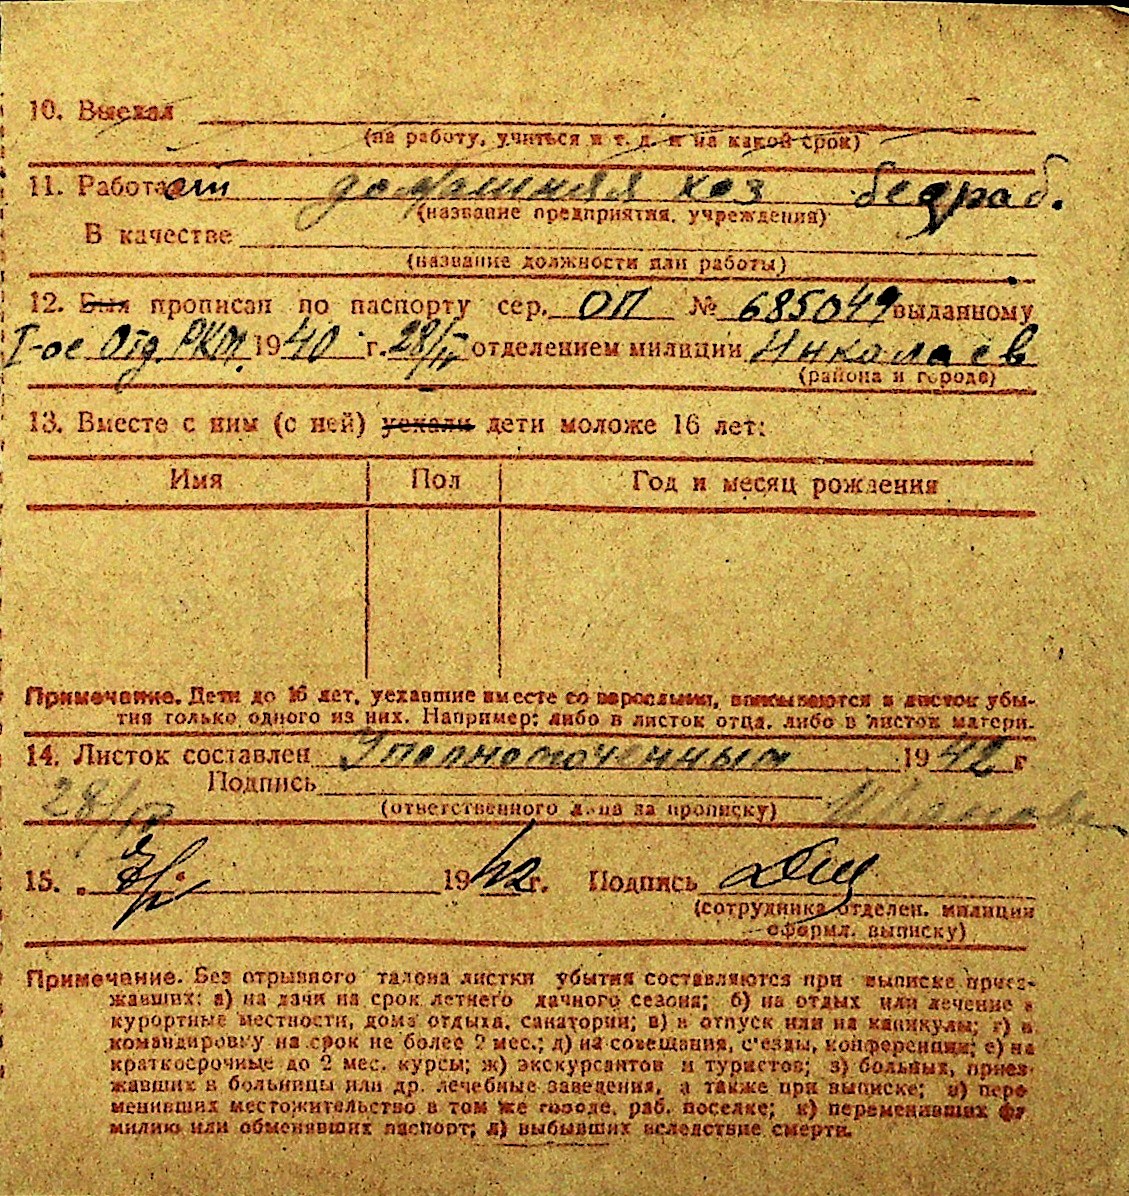 10. Выехал
(на работу, учиться и т. д. и на какой срок)
11. Работает домашняя хоз безраб.
(название предприятия, учреждения)
В качестве
(название должности или работы)
12. Был прописан по паспорту сер. ОП № 685049 выданному
I-ое Отд. РКМ. 1940 г. 28/IV отделением милиции Николаев
(района и города)
13. Вместе с ним (с ней) уехали дети моложе 16 лет:
Имя Пол Год и месяц рождения
Примечание. Дети до 16 лет, уехавшие вместе со взрослыми, вписываются в листок убы-
тия только одного из них. Например: либо в листок отца, либо в листок матери.
14. Листок составлен Уполномоченным 1942 г
Подпись
28/IV (ответственного лица за прописку)
15. 1942 г. Подпись
(сотрудника отделен. милиции
оформл. выписку)
Примечание. Без отрывного талона листки убытия составляются при выписке приез-
жавших: а) на дачи на срок летнего дачного сезона; б) на отдых или лечение в
курортные местности, дома отдыха, санатории; в) в отпуск или на каникулы; г) в
командировку на срок не более 2 мес.; д) на совещания, с'езды, конференции; е) на
краткосрочные до 2 мес. курсы; ж) экскурсантов и туристов; з) больных, приез-
жавших в больницы или др. лечебные заведения, а также при выписке; и) пере
менивших местожительство в том же городе, раб. поселке; к) переменивших фа
милию или обменявших паспорт; л) выбывших вследствие смерти.